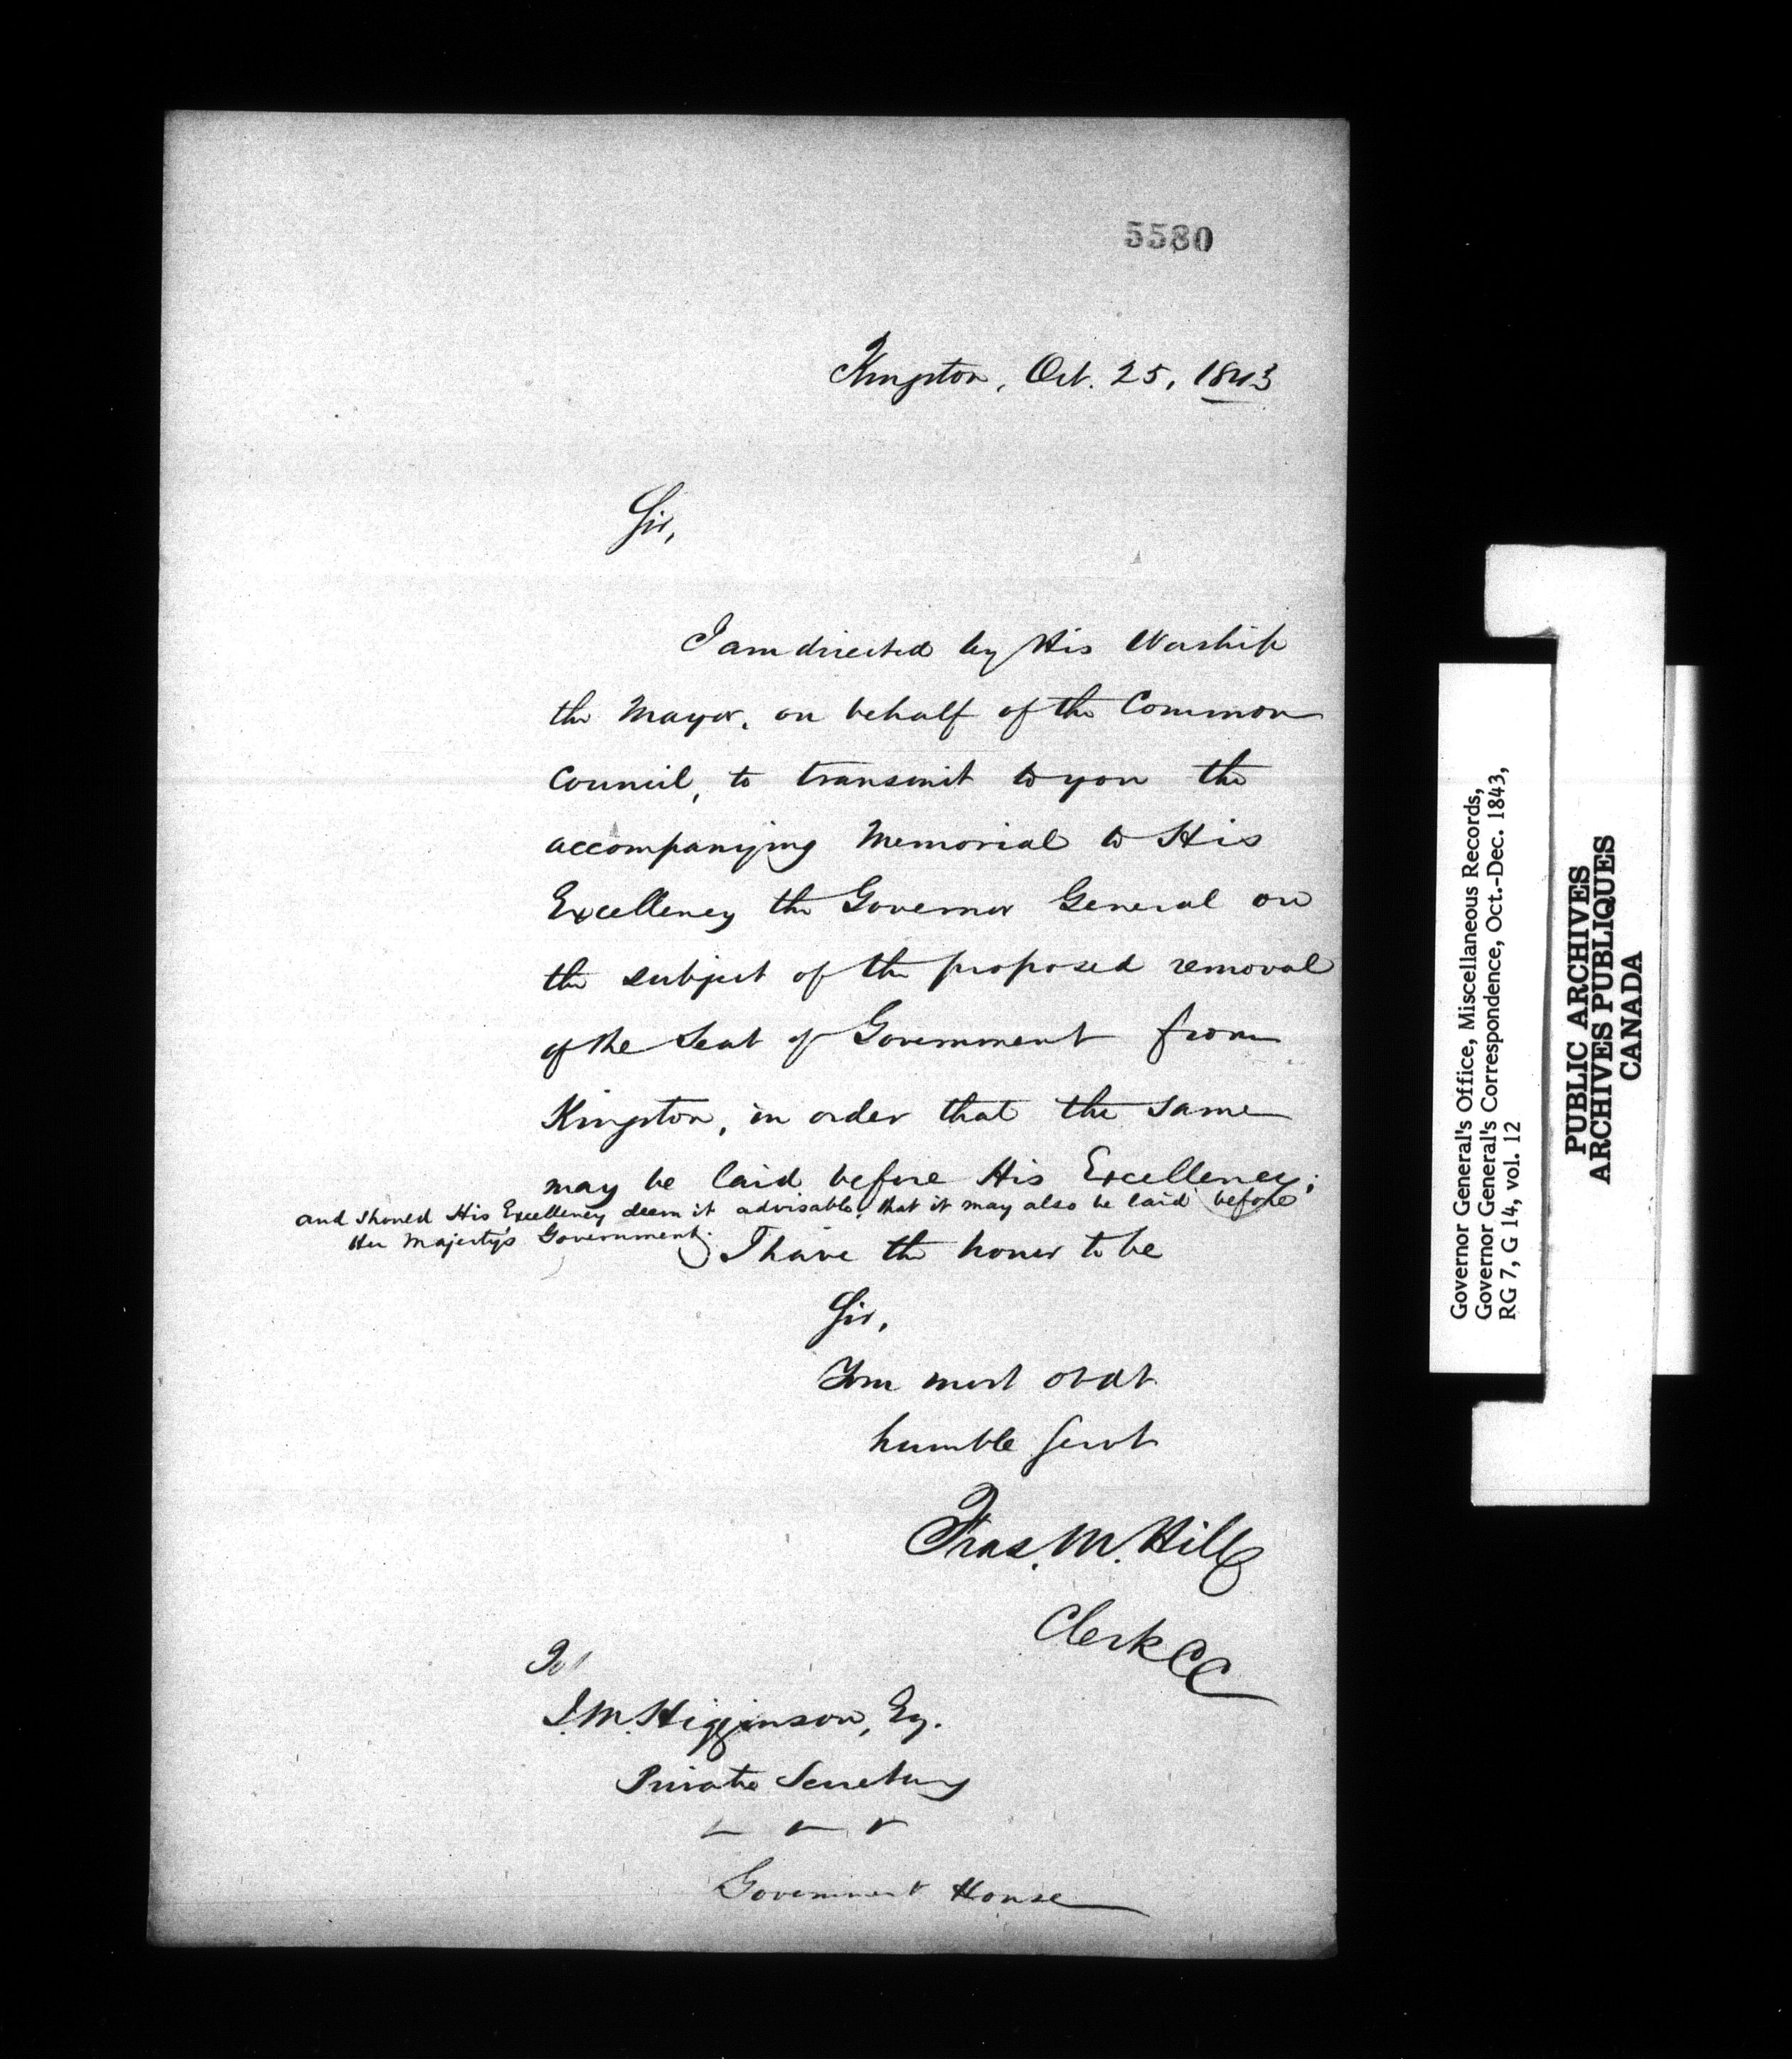 5580
Kingston, Oct. 25, 1843
Sir,
I am directed by His Worship
the Mayor, on behalf of the Common
Council, to transmit to you the
accompanying Memorial to His
Excellency the Governor General on
the subject of the proposed removal
of the Seat of Government from
Kingston, in order that the same
may be laid before His Excellency;
and should His Excellency deem it advisable, that it may also be laid before
Her Majesty's Government.
I have the honor to be
Sir,
Your most obdt
humble servt
Fras. M. Hill
Clerk CC
To
J.M. Higginson, Esq.
Private Secretary
Government House
Governor General's Office, Miscellaneous Records,
Governor General's Correspondence, Oct.-Dec. 1843,
RG 7, G 14, vol. 12
PUBLIC ARCHIVES
ARCHIVES PUBLIQUES
CANADA